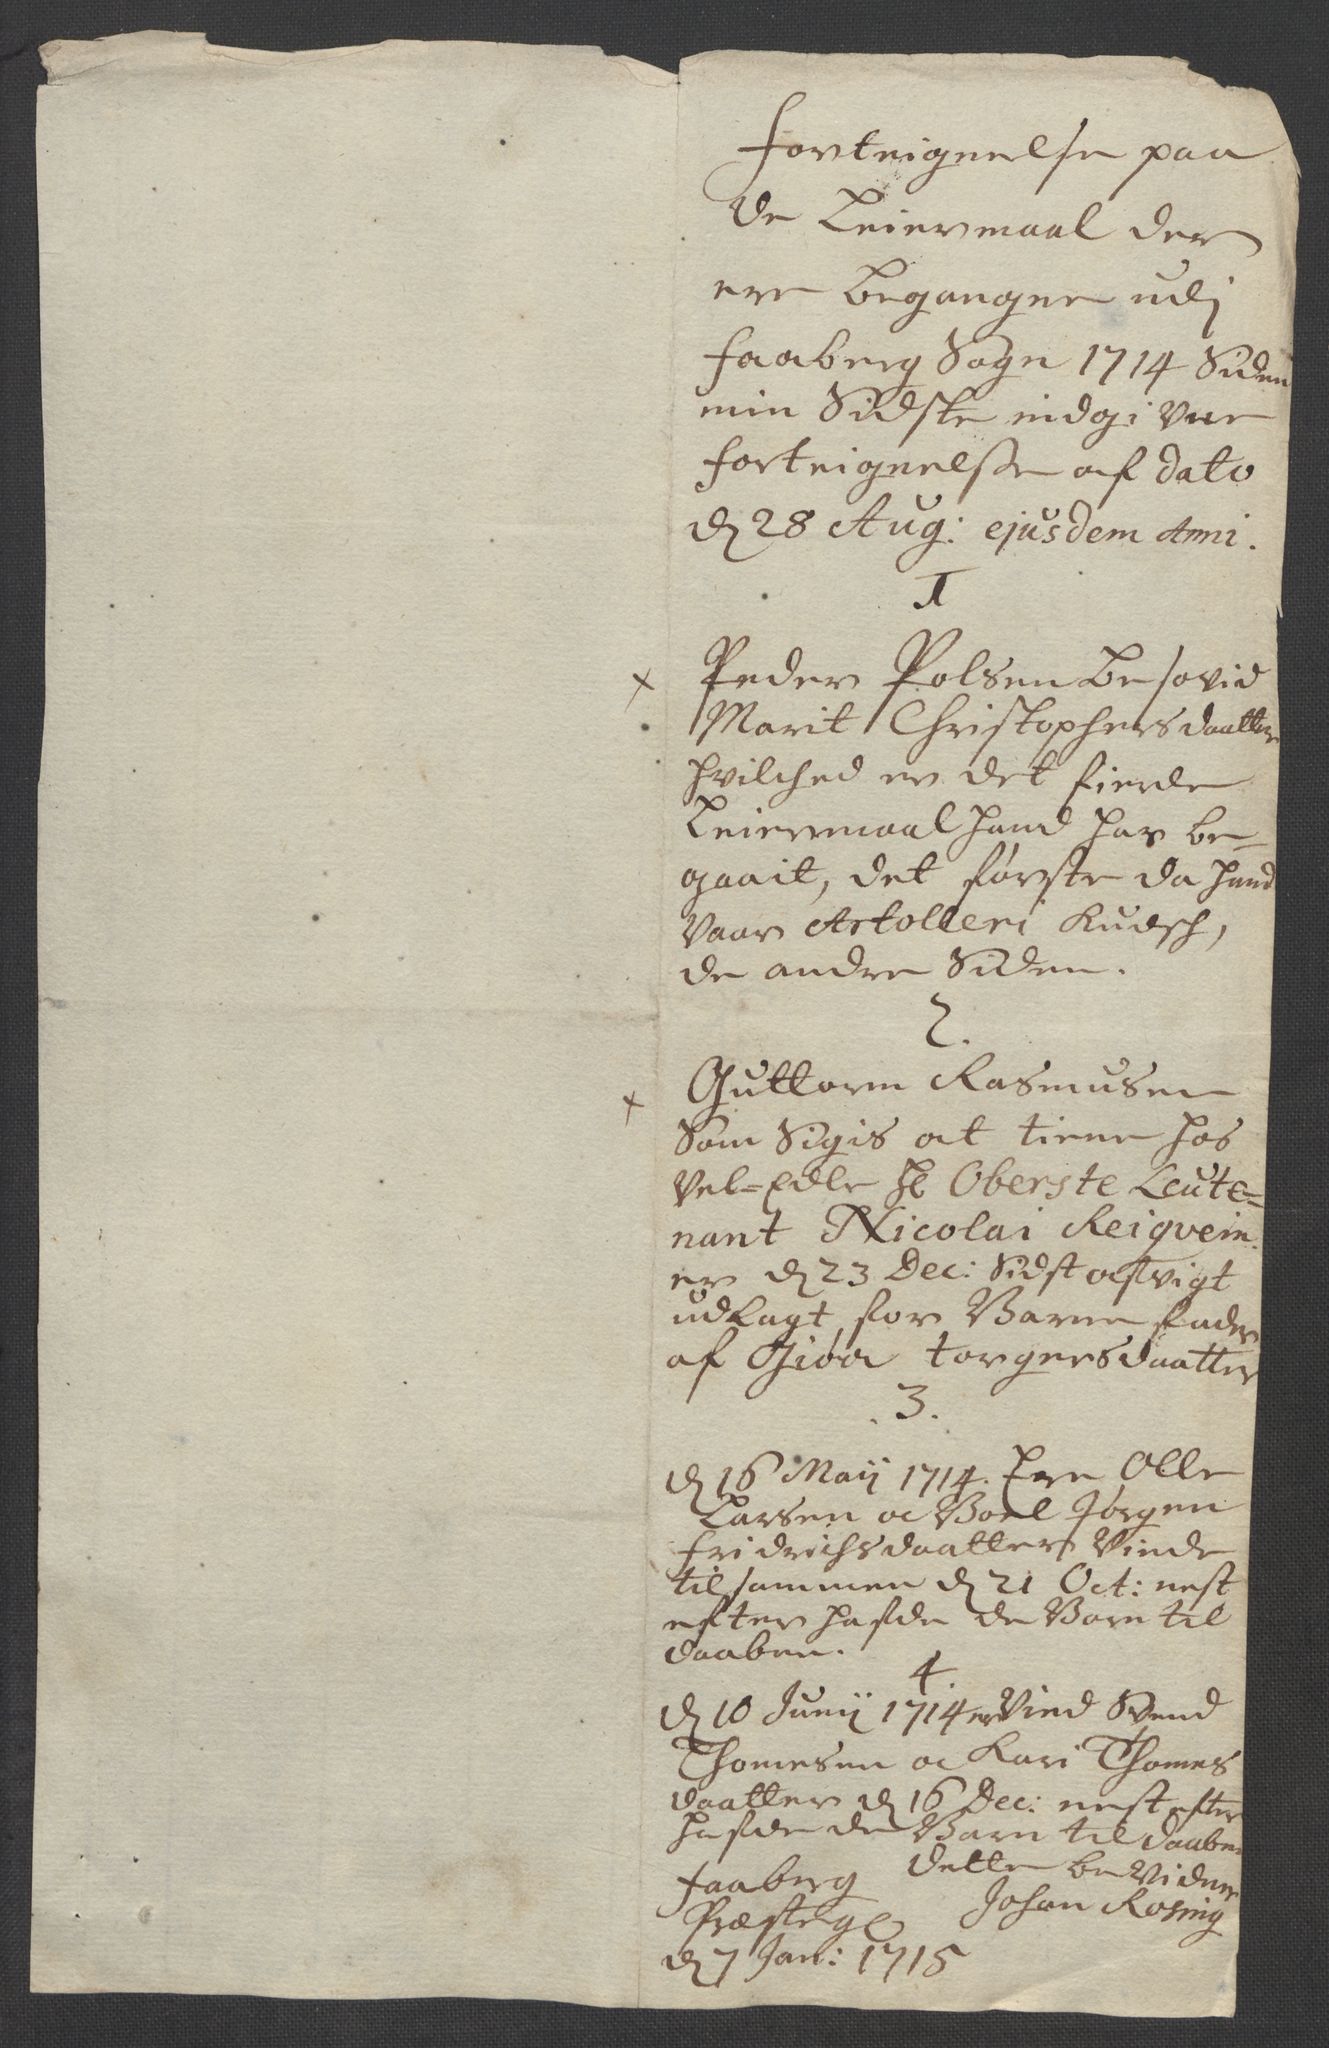 forteignelse paa
de Leiermaal der
ere begangne udj
faaberg Sogn 1714 Siden
min Sidste indgivne
forteignelse af dato
d 28 Aug: ejusdem Anni.
1
× Peder Polsen besovid
Marit Christophersdaatter
hvilched er det fierde
Leiermaal hand har be=
gaait, det første da hand
vaar Artolleri Kudsch,
de andre Siden.
2.
× Guttorm Rasmusen
Som Sigis at tiene hos
Vel=Edle Hr Oberste Leute=
nant Nicolai Reiqvein.
er d 23 Dec: Sidst afvigt
udlagt for Barne fader
af Giøa torgersdaatter
.3.
d 16 Maij 1714. Ere Olle
Larsen oc Boel Jørgen
fridrichsdaatter Viede
tilsammen d 21 Oct: nest
efter hafde de Barn til
daaben.
4.
d 10 Junij 1714 er Vied Svend
Thomesen oc Kari Thomes
daatter d 16 Dec: nest efter
hafde de Barn til daaben
dette beVidner
faaberg Johan Rosing
Præsteg
d 7 Jan: 1715